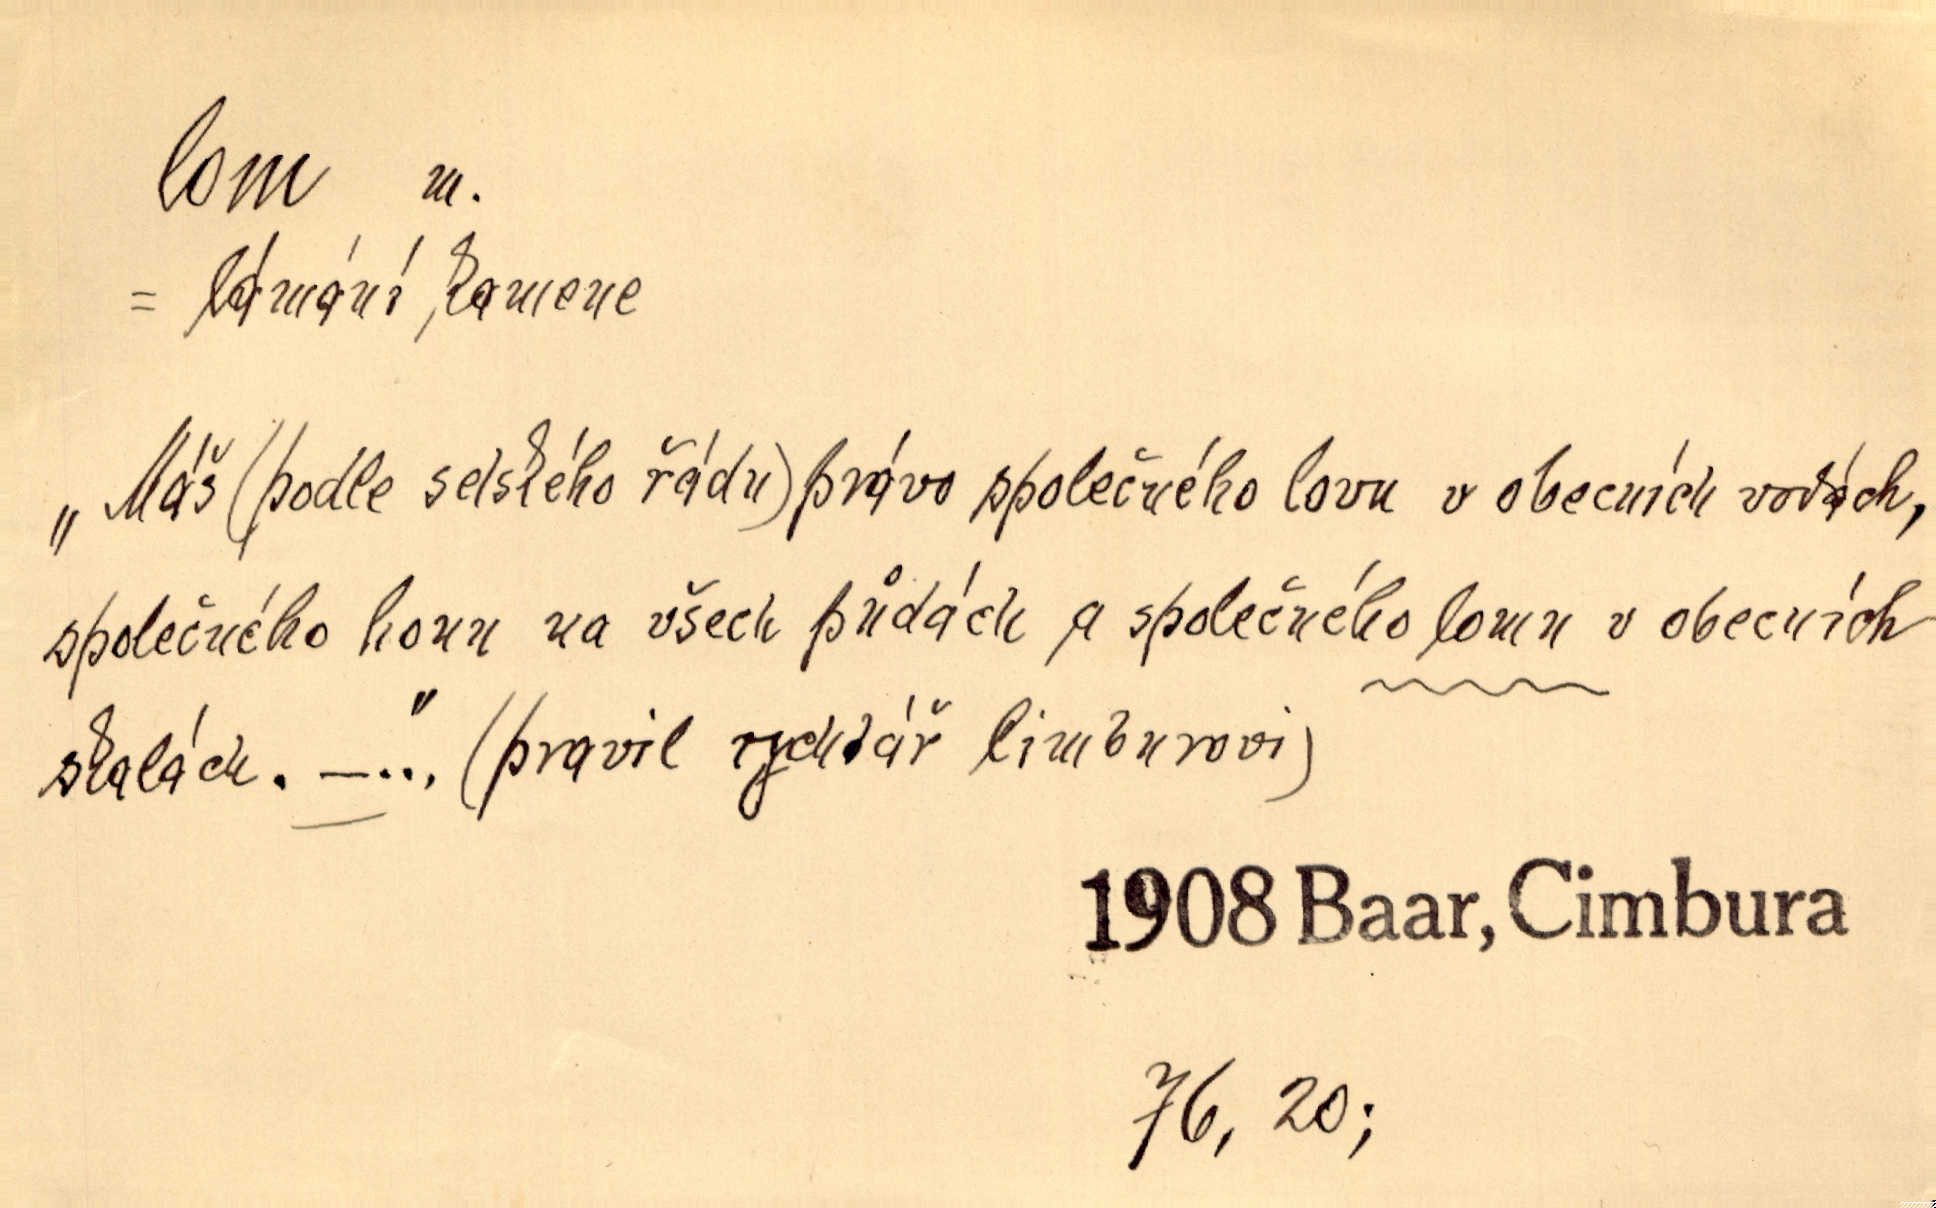 lom m.
= lámání kamene
„Máš (podle selského řádu) právo společného lovu v obecních vodách,
společného honu na všech půdách a společného lomu v obecních
skalách. —..." (pravil rychtář Cimburovi)
1908 Baar, Cimbura
76, 20;